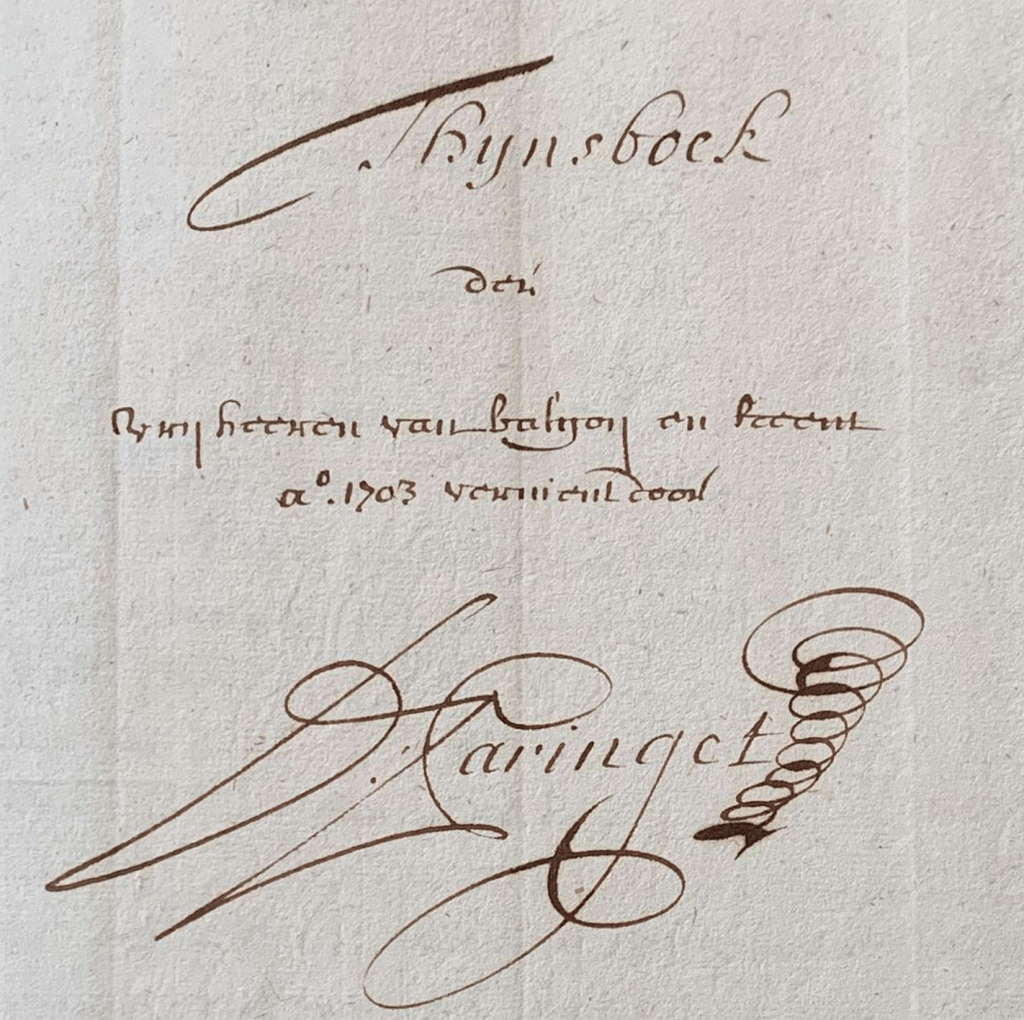 Thynsboek
der
vrij heeren van balgoij en keent
a°. 1703 vernieut door
Caringet